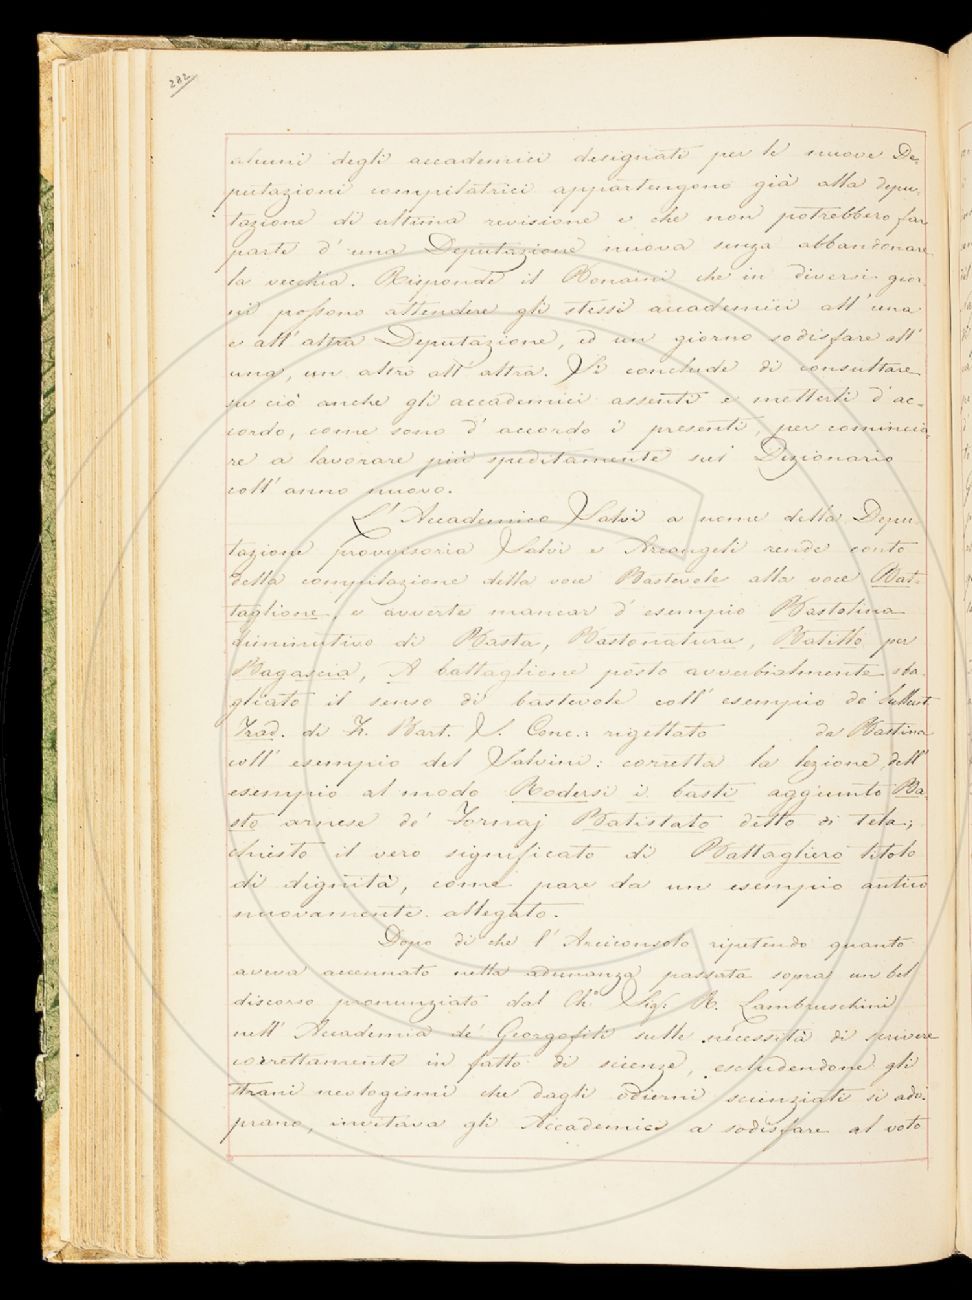 282
alcuni degli accademici designati per le nuove De-
putazioni compilatrici appartengono già alla depu-
tazione di ultima revisione e che non potrebbero far
parte d'una Deputazione nuova senza abbandonare
la vecchia. Risponde il Bonaini che in diversi gior-
ni possono attendere gli stessi accademici all'una
e all'altra Deputazione, ed un giorno sodisfare all'
una, un altro all'altra. Si conclude di consultare
su ciò anche gli accademici assenti e metterli d'ac-
cordo, come sono d'accordo i presenti, per comincia-
re a lavorare più speditamente sul Dizionario
coll'anno nuovo.
L'Accademico Salvi a nome della Depu-
tazione provvisoria Salvi e Arcangeli rende conto
della compilazione della voce Bastevole alla voce Bat-
taglione, e avverte mancar d'esempio Bastolina
diminutivo di Basta, Bastonatura, Batillo per
Bagascia, A battaglione posto avverbialmente sba-
gliato il senso di bastevole coll'esempio de'
Trad. di Z. Bart. S. Conc.: rigettato da Bastina
coll'esempio del Salvini: corretta la lezione dell'
esempio al modo Rodersi i basti aggiunto Ba-
sto arnese de' Fornaj Batistato detto di tela;
chiesto il vero significato di Battagliero titolo
di dignità, come pare da un esempio antico
nuovamente allegato.
Dopo di che l'Arciconsolo ripetendo quanto
aveva accennato nella adunanza passata sopra un bel
discorso pronunziato dal Ch.o Sig. R. Lambruschini
nell'Accademia de' Georgofili sulla necessità di scrivere
correttamente in fatto di scienze, escludendone gli
strani neologismi che dagli odierni scienziati si ado-
prano, invitava gli Accademici a sodisfare al voto